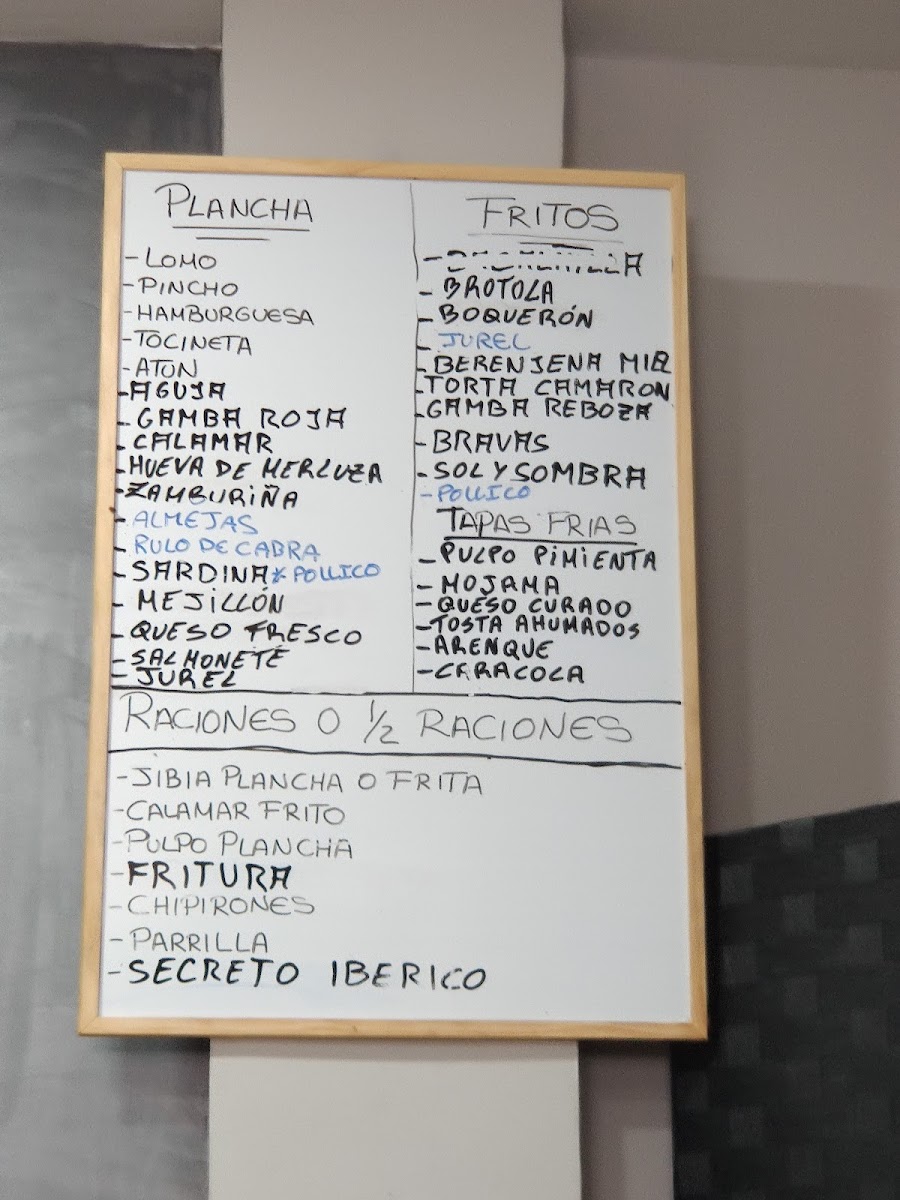 PLANCHA
-LOMO
-PINCHO
-HAMBURGUESA
-TOCINETA
-ATUN
-AGUJA
-GAMBA ROJA
-CALAMAR
-HUEVA DE MERLUZA
-ZAMBURIÑA
-ALMEJAS
-RULO DE CABRA
-SARDINA * POLLICO
-MEJILLÓN
-QUESO FRESCO
-SALMONETE
-JUREL
FRITOS
-BROTOLA
-BOQUERÓN
-JUREL
-BERENJENA MIEL
-TORTA CAMARON
-GAMBA REBOZA
-BRAVAS
-SOL Y SOMBRA
-POLLICO
TAPAS FRIAS
-PULPO PIMIENTA
-MOJAMA
-QUESO CURADO
-TOSTA AHUMADOS
-ARENQUE
-CARACOLA
RACIONES O 1/2 RACIONES
-JIBIA PLANCHA O FRITA
-CALAMAR FRITO
-PULPO PLANCHA
-FRITURA
-CHIPIRONES
-PARRILLA
-SECRETO IBERICO